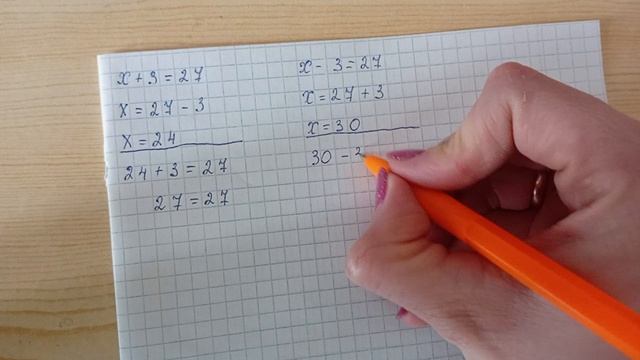 x + 3 = 27
x = 27 - 3
x = 24
24 + 3 = 27
27 = 27
x - 3 = 27
x = 27 + 3
x = 30
30 -